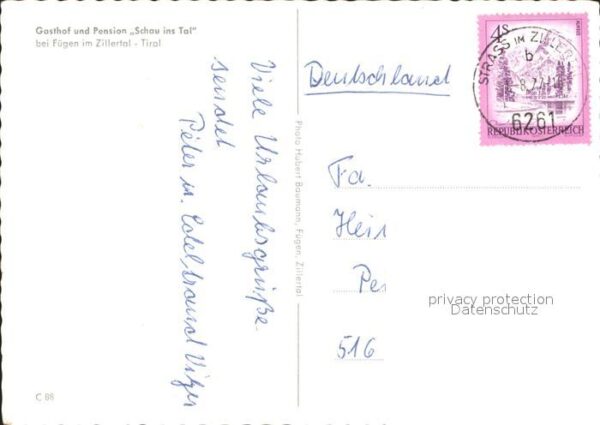 Gasthof und Pension „Schau ins Tal"
bei Fügen im Zillertal - Tirol
Viele Urlaubsgrüße
sendet
Peter u. Edeltraud
Photo Hubert Baumann, Fügen, Zillertal
C 88
4S
REPUBLIK ÖSTERREICH
STRASS IM ZILLERT
b
6261
Deutschland
Fa.
Hein
Pe
516
privacy protection
Datenschutz